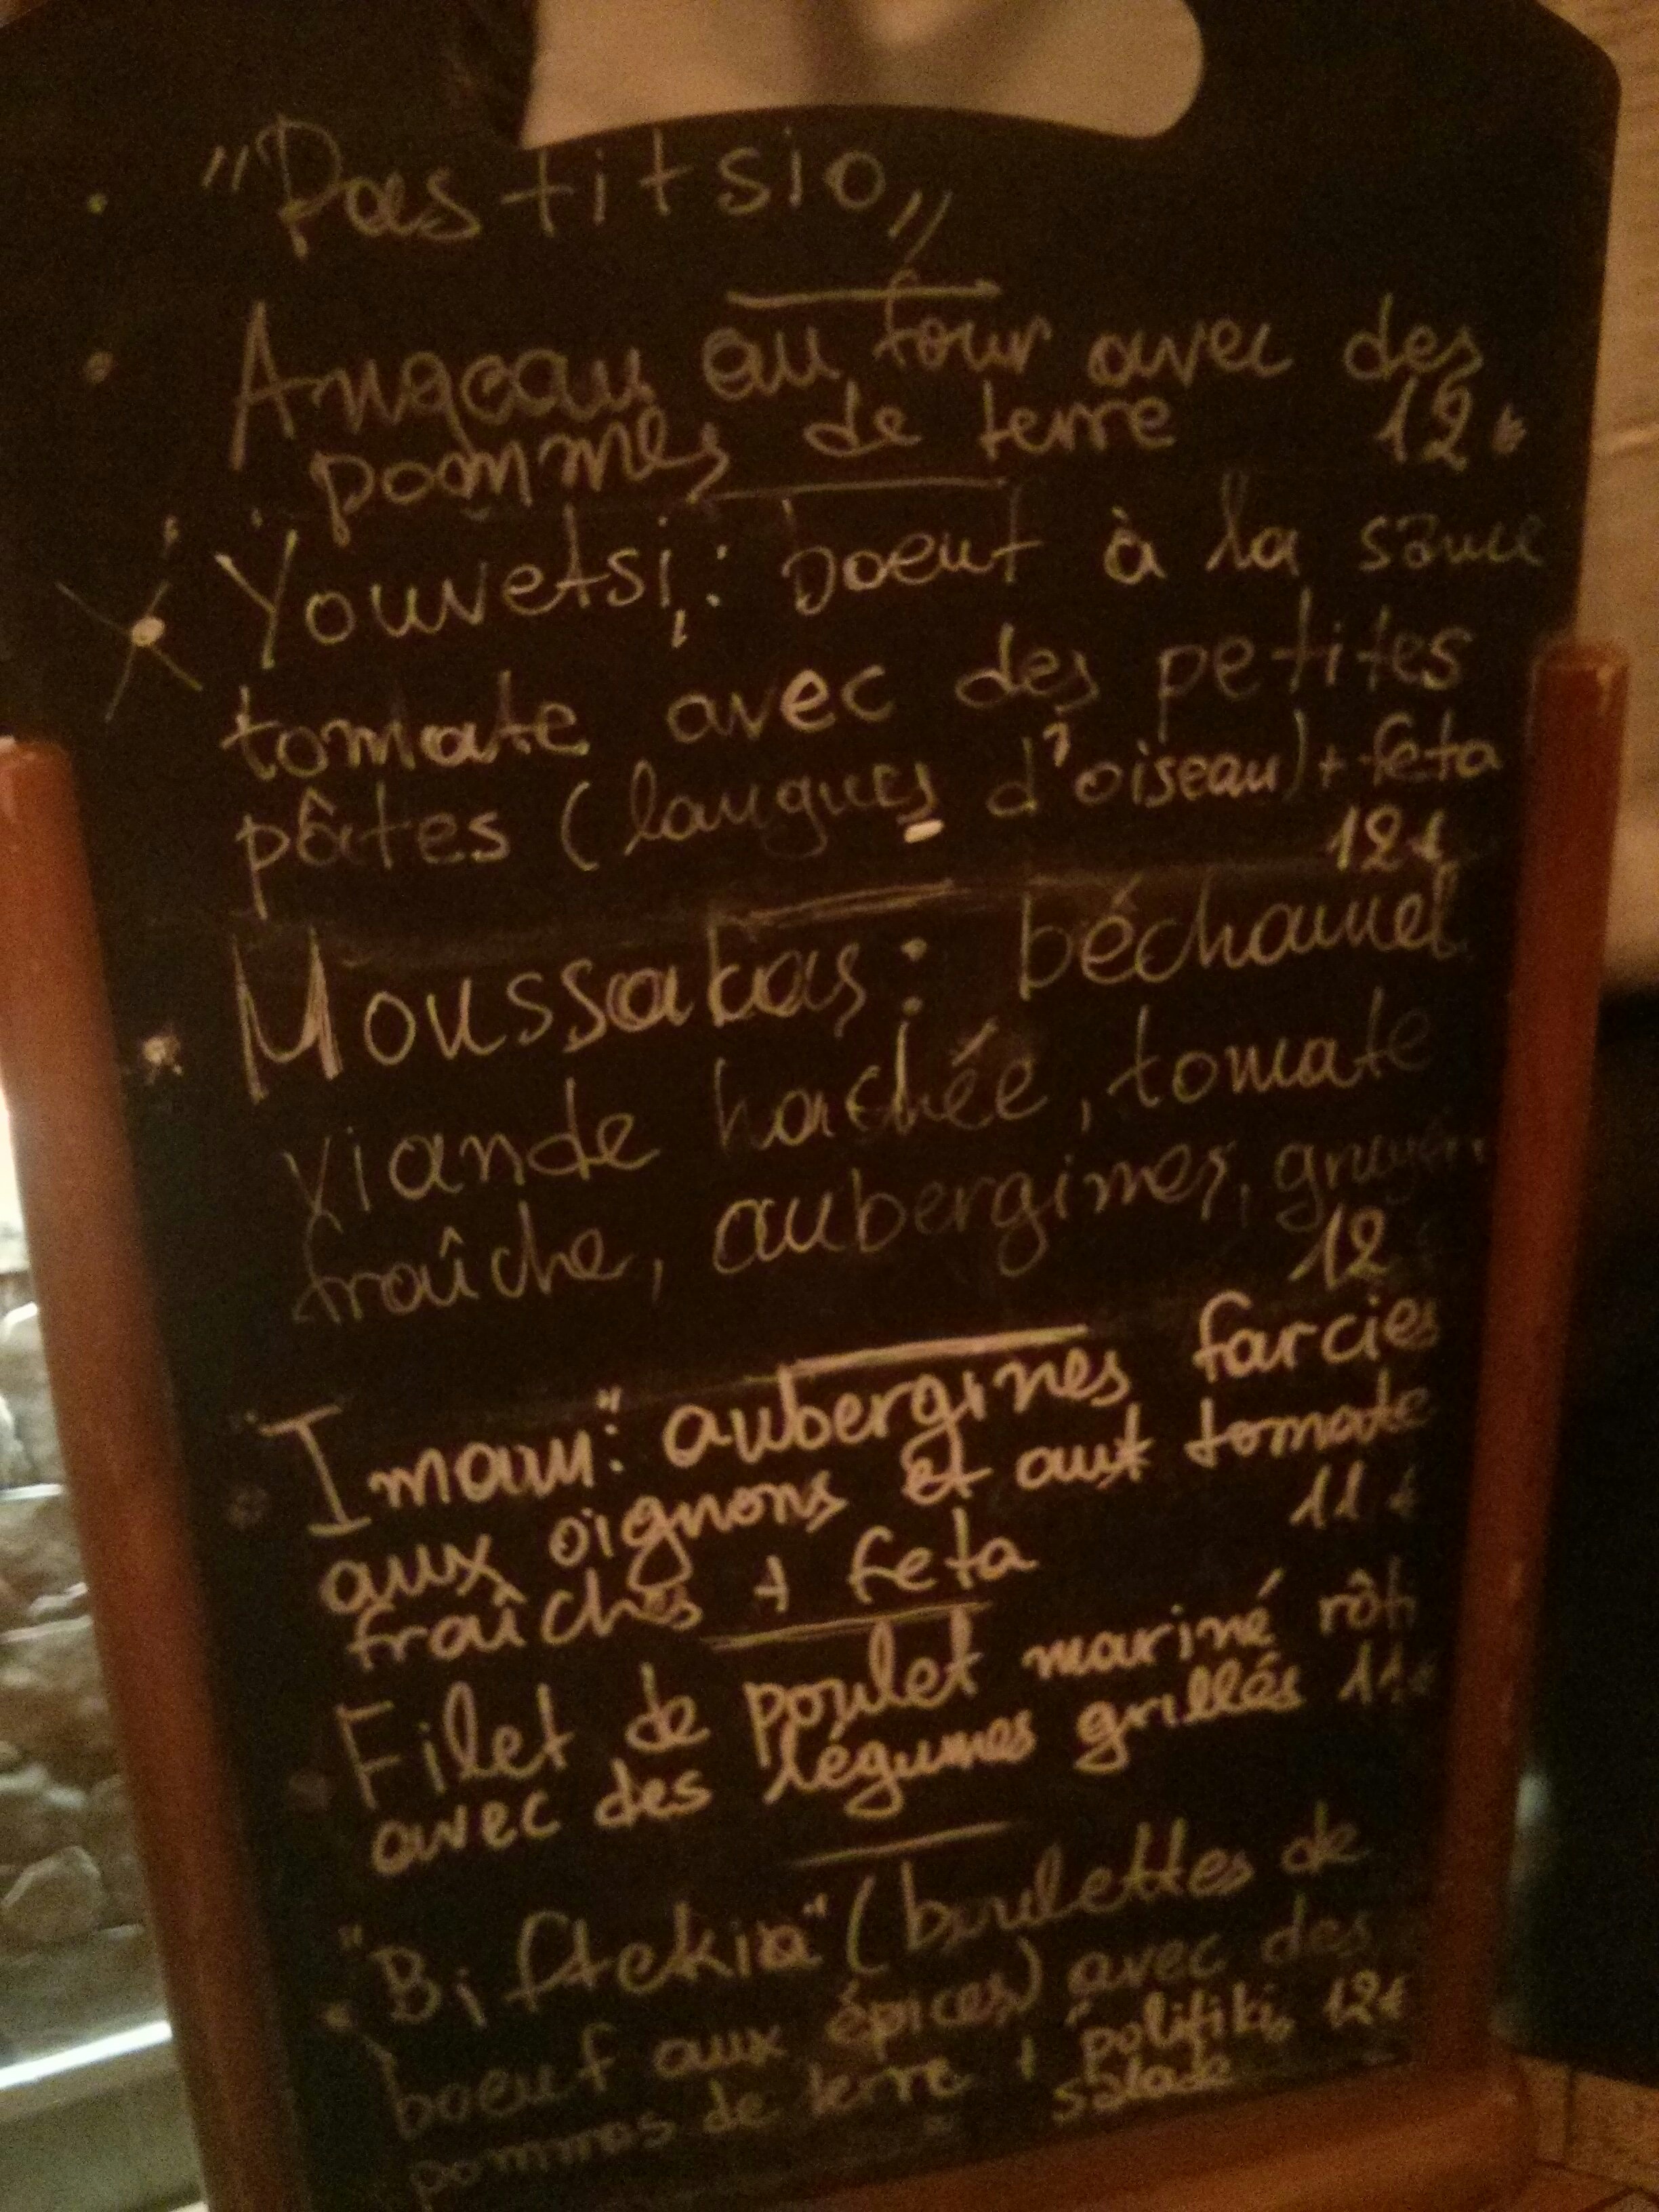 "Pastitsio"
Angeau au four avec des
pommes de terre 12€
"Youvetsi": boeuf à la sauce
tomate avec des petites
pâtes (langues d'oiseau) + feta
12€
Moussakas: béchamel
viande hachée, tomate
fraîche, aubergines, gruyère
12
Imam": aubergines farcies
aux oignons et aux tomate
11€
fraîches + feta
Filet de poulet mariné rôti
avec des légumes grillés 11€
"Biftekia" (boulettes de
boeuf aux épices) avec des
pommes de terre + politiki 12€
salade